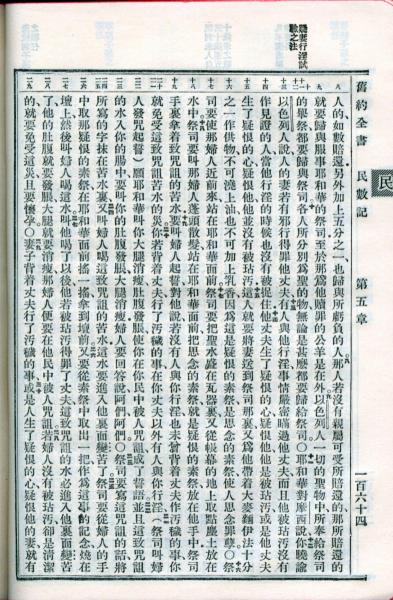 疑妻行淫試
驗之法
民
舊約全書　民數記　第五章　一百六十四
人的如數賠還另外加上五分之一也歸與所虧負的人那人若沒有親屬可受所賠還的那所賠還的
就要歸與服事耶和華的祭司至於那爲他贖罪的公羊是在外以色列人一切的聖物中所奉給祭司
的舉祭都要歸與祭司各人所分別爲聖的物無論是甚麽都要歸給祭司〇耶和華對摩西說你曉諭
以色列人說人的妻若有邪行得罪他丈夫有人與他行淫事情嚴密瞞過他丈夫而且他被玷污沒有
作見證的人當他行淫的時候也沒有被捉住他丈夫生了疑恨的心疑恨他他是被玷污或是他丈夫
生了疑恨的心疑恨他他並沒有被玷污這人就要將妻送到祭司那裏又爲他帶着大麥麵伊法十分
之一作供物不可澆上油也不可加上乳香因爲這是疑恨的素祭是思念的素祭使人思念罪孽〇祭
司要使那婦人近前來站在耶和華面前祭司要把聖水盛在瓦器裏又從帳幕的地上取點塵土放在
水中祭司要叫那婦人蓬頭散髮站在耶和華面前把思念的素祭就是疑恨的素祭放在他手中祭司
手裏拿着致咒詛的苦水要叫婦人起誓對他說若沒有人與你行淫也未曾背着丈夫作汚穢的事你
就免受這致咒詛苦水的災你若背着丈夫行了汚穢的事在你丈夫以外有人與你行淫(祭司叫婦
人發咒起誓)願耶和華叫你大腿消瘦肚腹發脹使你在你民中被人咒詛成了誓語並且這致咒詛
的水入你的腸中要叫你的肚腹發脹大腿消瘦婦人要回答說阿們阿們〇祭司要寫這咒詛的話將
所寫的字抹在苦水裏又叫婦人喝這致咒詛的苦水這水要進入他裏面變苦了祭司要從婦人的手
中取那疑恨的素祭在耶和華面前搖一搖拿到壇前又要從素祭中取出一把作爲這事的記念燒在
壇上然後叫婦人喝這水叫他喝了以後他若被玷污得罪了丈夫這致咒詛的水必進入他裏面變苦
了他的肚腹就要發脹大腿就要消瘦那婦人便要在他民中被人咒詛若婦人沒有被玷污卻是清潔
的就要免受這災且要懷孕〇妻子背着丈夫行了汚穢的事或是人生了疑恨的心疑恨他的妻就有